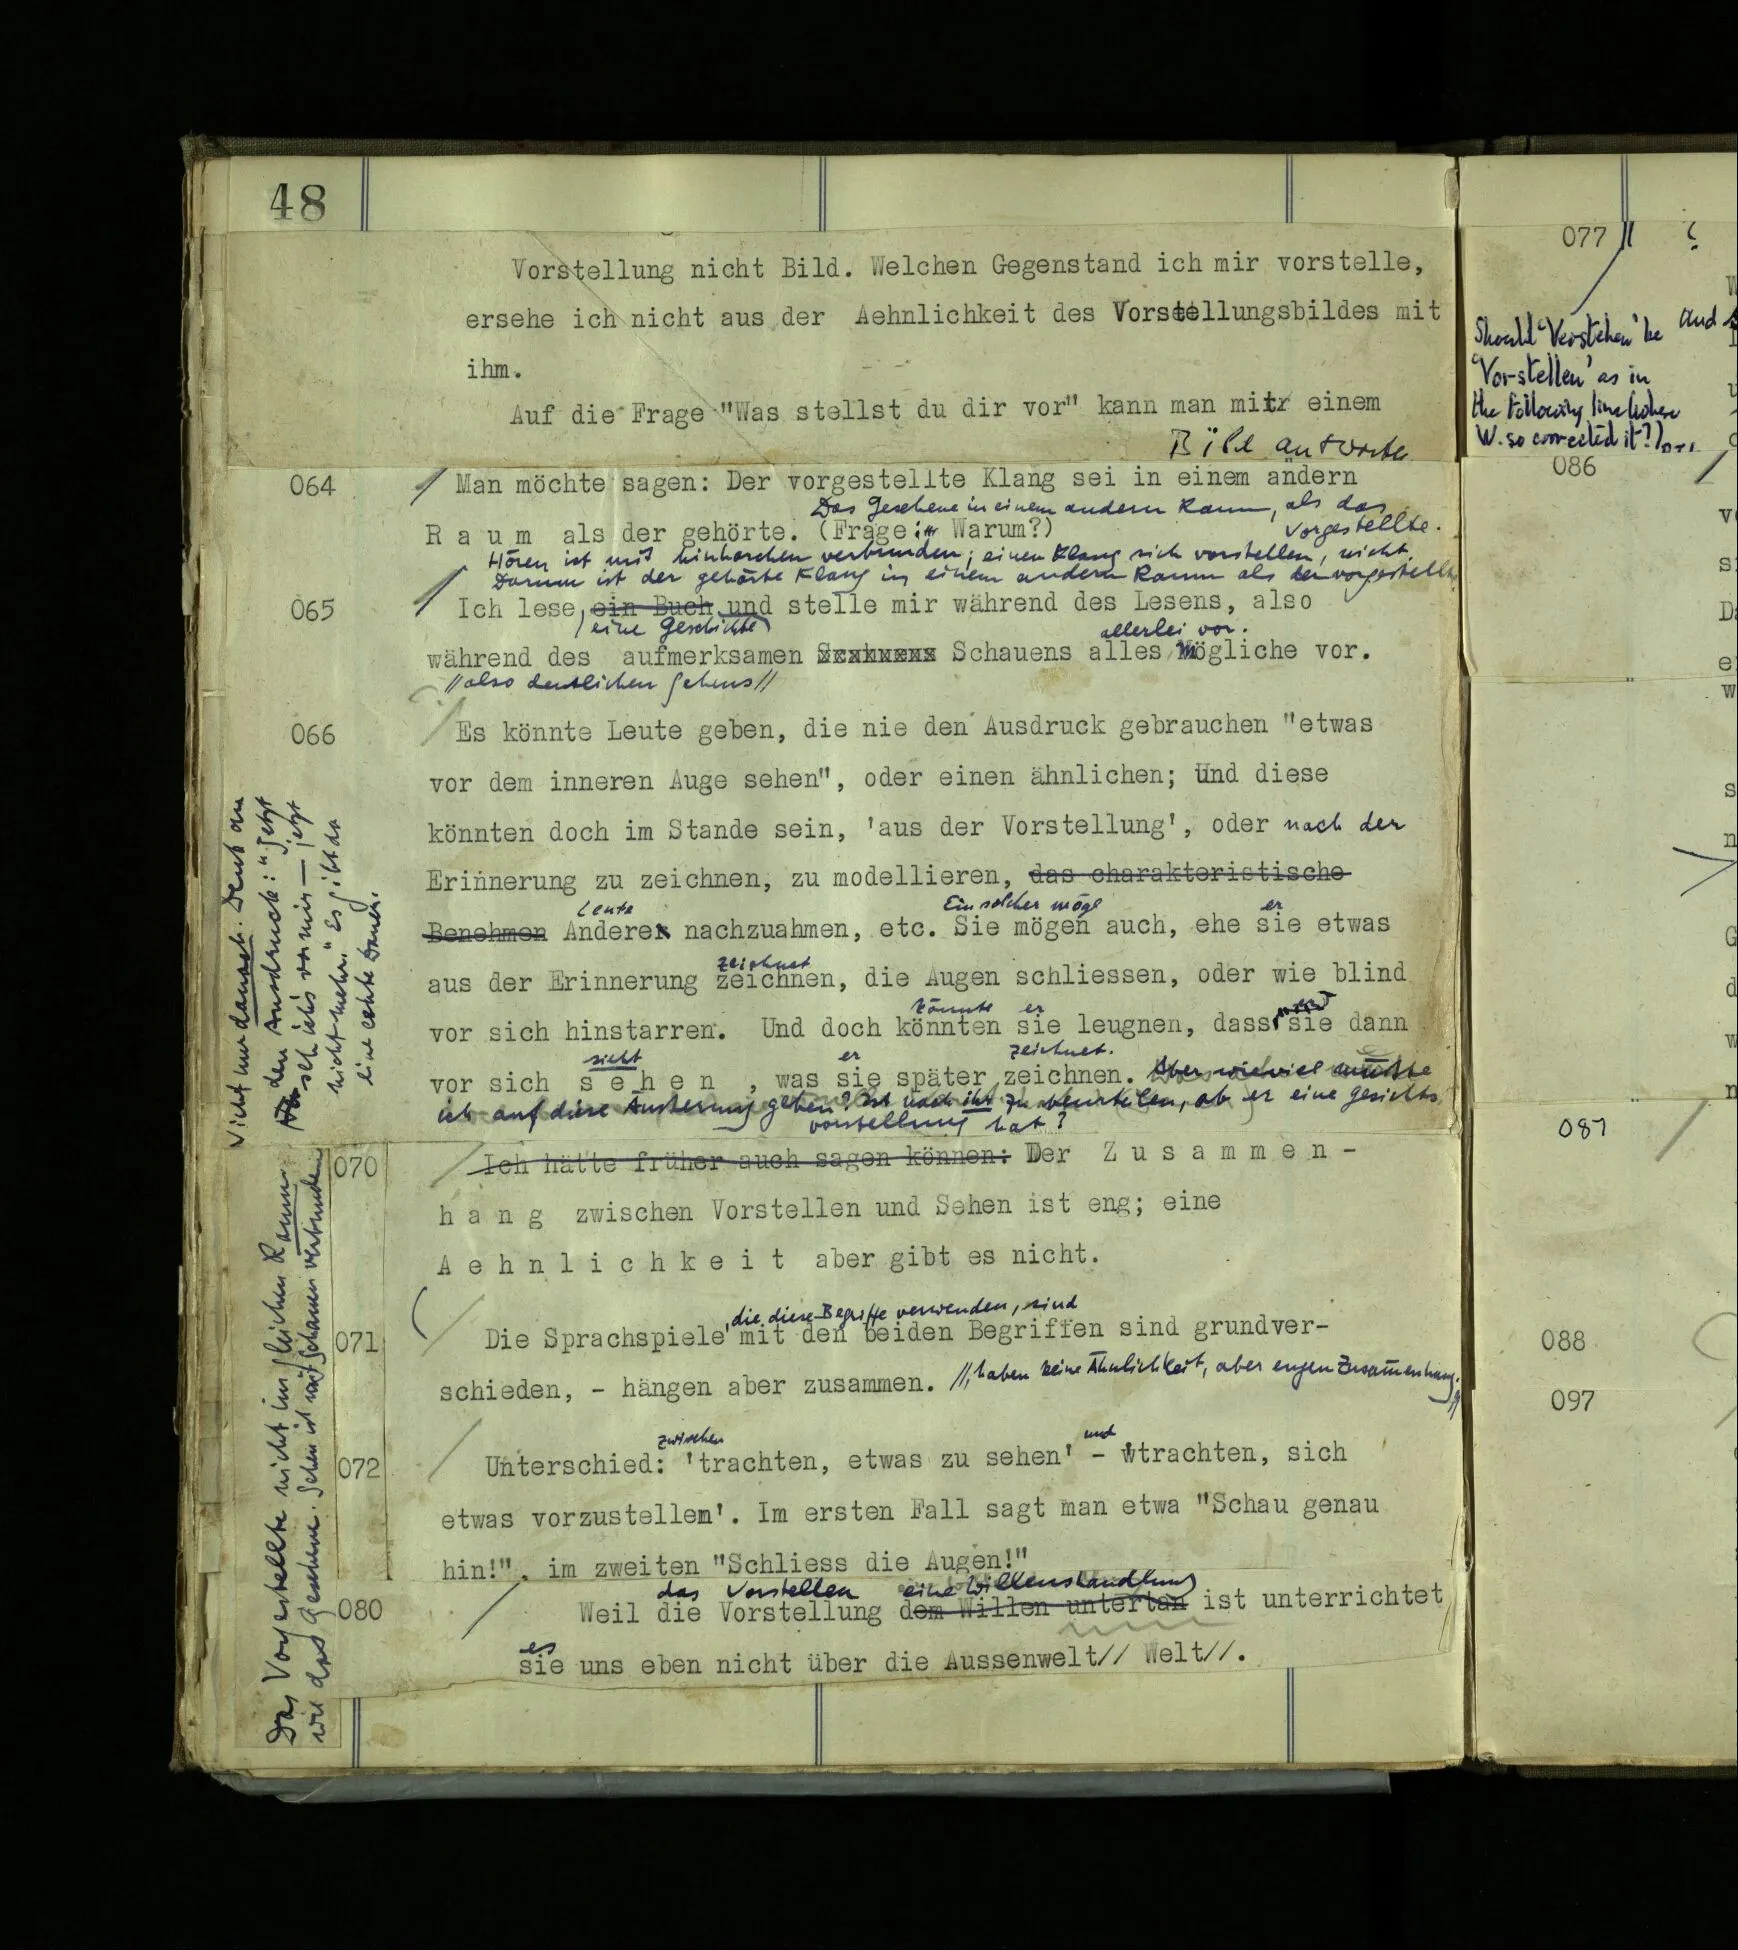 48
Vorstellung nicht Bild. Welchen Gegenstand ich mir vorstelle,
ersehe ich nicht aus der Aehnlichkeit des Vorstellungsbildes mit
ihm.
Auf die Frage "Was stellst du dir vor" kann man mitr einem
Bild antworten
064 / Man möchte sagen: Der vorgestellte Klang sei in einem andern
Das Gesehene in einem andern Raum, als das
R a u m als der gehörte. (Frage: Warum?)
Vorgestellte.
Hören ist mit hinhorchen verbunden; einen Klang sich vorstellen, nicht.
Darum ist der gehörte Klang in einem andern Raum als der vorgestellte
065 / Ich lese, ein Buch und stelle mir während des Lesens, also
eine Geschichte
allerlei vor.
während des aufmerksamen Schauens alles Mögliche vor.
//also deutlichen Sehens//
066 / Es könnte Leute geben, die nie den Ausdruck gebrauchen "etwas
vor dem inneren Auge sehen", oder einen ähnlichen; Und diese
könnten doch im Stande sein, 'aus der Vorstellung', oder nach der
Erinnerung zu zeichnen, zu modellieren, das charakteristische
Leute Ein solcher mag er
Benehmen Anderer nachzuahmen, etc. Sie mögen auch, ehe sie etwas
zeichnet
aus der Erinnerung zeichnen, die Augen schliessen, oder wie blind
könnte er
vor sich hinstarren. Und doch könnten sie leugnen, dass sie dann
sieht er zeichnet.
vor sich s e h e n , was sie später zeichnen. Aber wieviel müsste
ich auf diese Äusserung geben? Ist nach ihr zu beurteilen, ob er eine Gesichts
vorstellung hat?
Nicht nur danach. Denk an
den Ausdruck: "Jetzt
seh ich's vor mir — jetzt
nicht mehr." Es gibt da
eine echte Dauer.
070 / Ich hätte früher auch sagen können: Der Z u s a m m e n -
h a n g zwischen Vorstellen und Sehen ist eng; eine
A e h n l i c h k e i t aber gibt es nicht.
, die diese Begriffe verwenden, sind
071 / Die Sprachspiele mit den beiden Begriffen sind grundver-
schieden, - hängen aber zusammen. //, haben keine Ähnlichkeit, aber engen Zusammenhang.//
zwischen und
072 / Unterschied: 'trachten, etwas zu sehen' - 'trachten, sich
etwas vorzustellen'. Im ersten Fall sagt man etwa "Schau genau
hin!", im zweiten "Schliess die Augen!"
das Vorstellen eine Willenshandlung
080 / Weil die Vorstellung dem Willen untertan ist unterrichtet
es
sie uns eben nicht über die Aussenwelt// Welt//.
Das Vorgestellte nicht im gleichen Raum
wie das Gesehene. Sehen ist mit Schauen verbunden
077 // ?
Should 'Verstehen' be
'Vorstellen' as in
the following line where
W. so corrected it?)
and
086 /
087 /
088
097